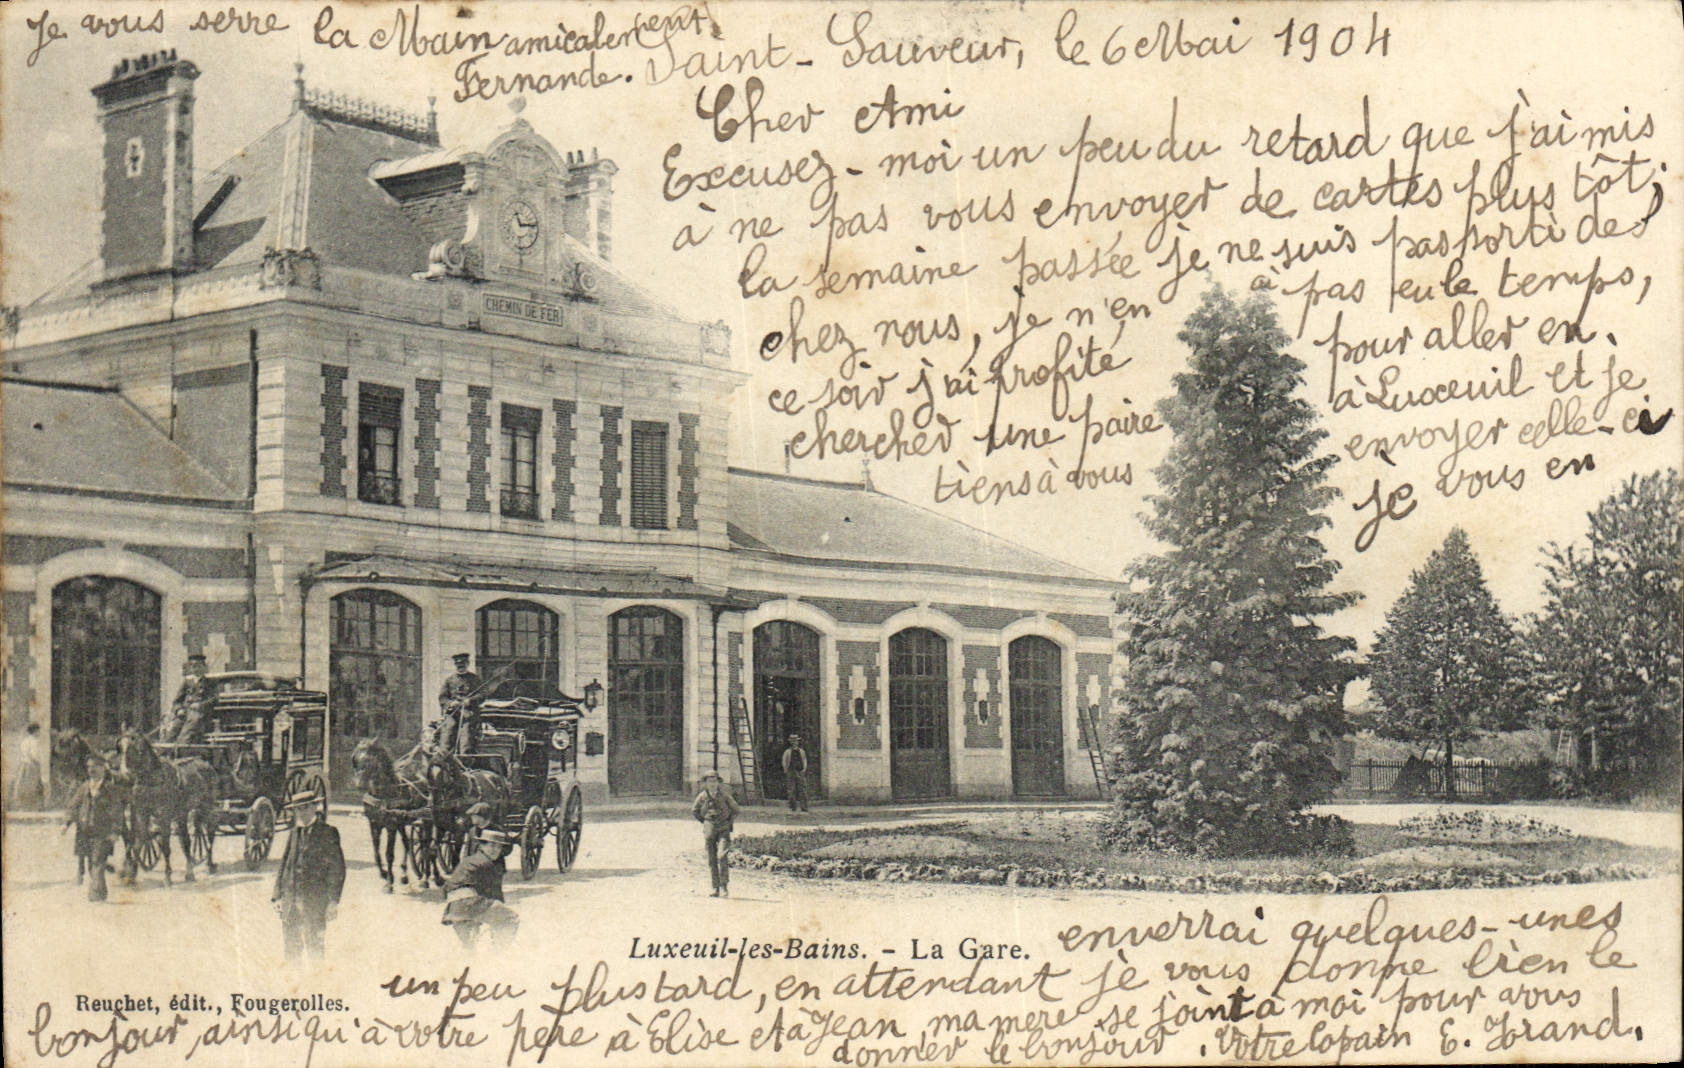 Je vous serre la Main amicalement.
Fernande.
Saint-Sauveur, le 6 Mai 1904
Cher Ami
Excusez-moi un peu du retard que j'ai mis
à ne pas vous envoyer de cartes plus tôt;
la semaine passée je ne suis pas sorti de
chez nous, je n'en ai pas eu le temps,
ce soir j'ai profité pour aller en
chercher une paire à Luxeuil et je
tiens à vous envoyer celle-ci
je vous en
CHEMIN DE FER
enverrai quelques-unes
Luxeuil-les-Bains. - La Gare.
Reuchet, édit., Fougerolles.
un peu plus tard, en attendant je vous donne bien le
bonjour, ainsi qu'à votre père, à Elise et à Jean, ma mère se joint à moi pour vous
donner le bonjour. Votre Copain E. Grand.